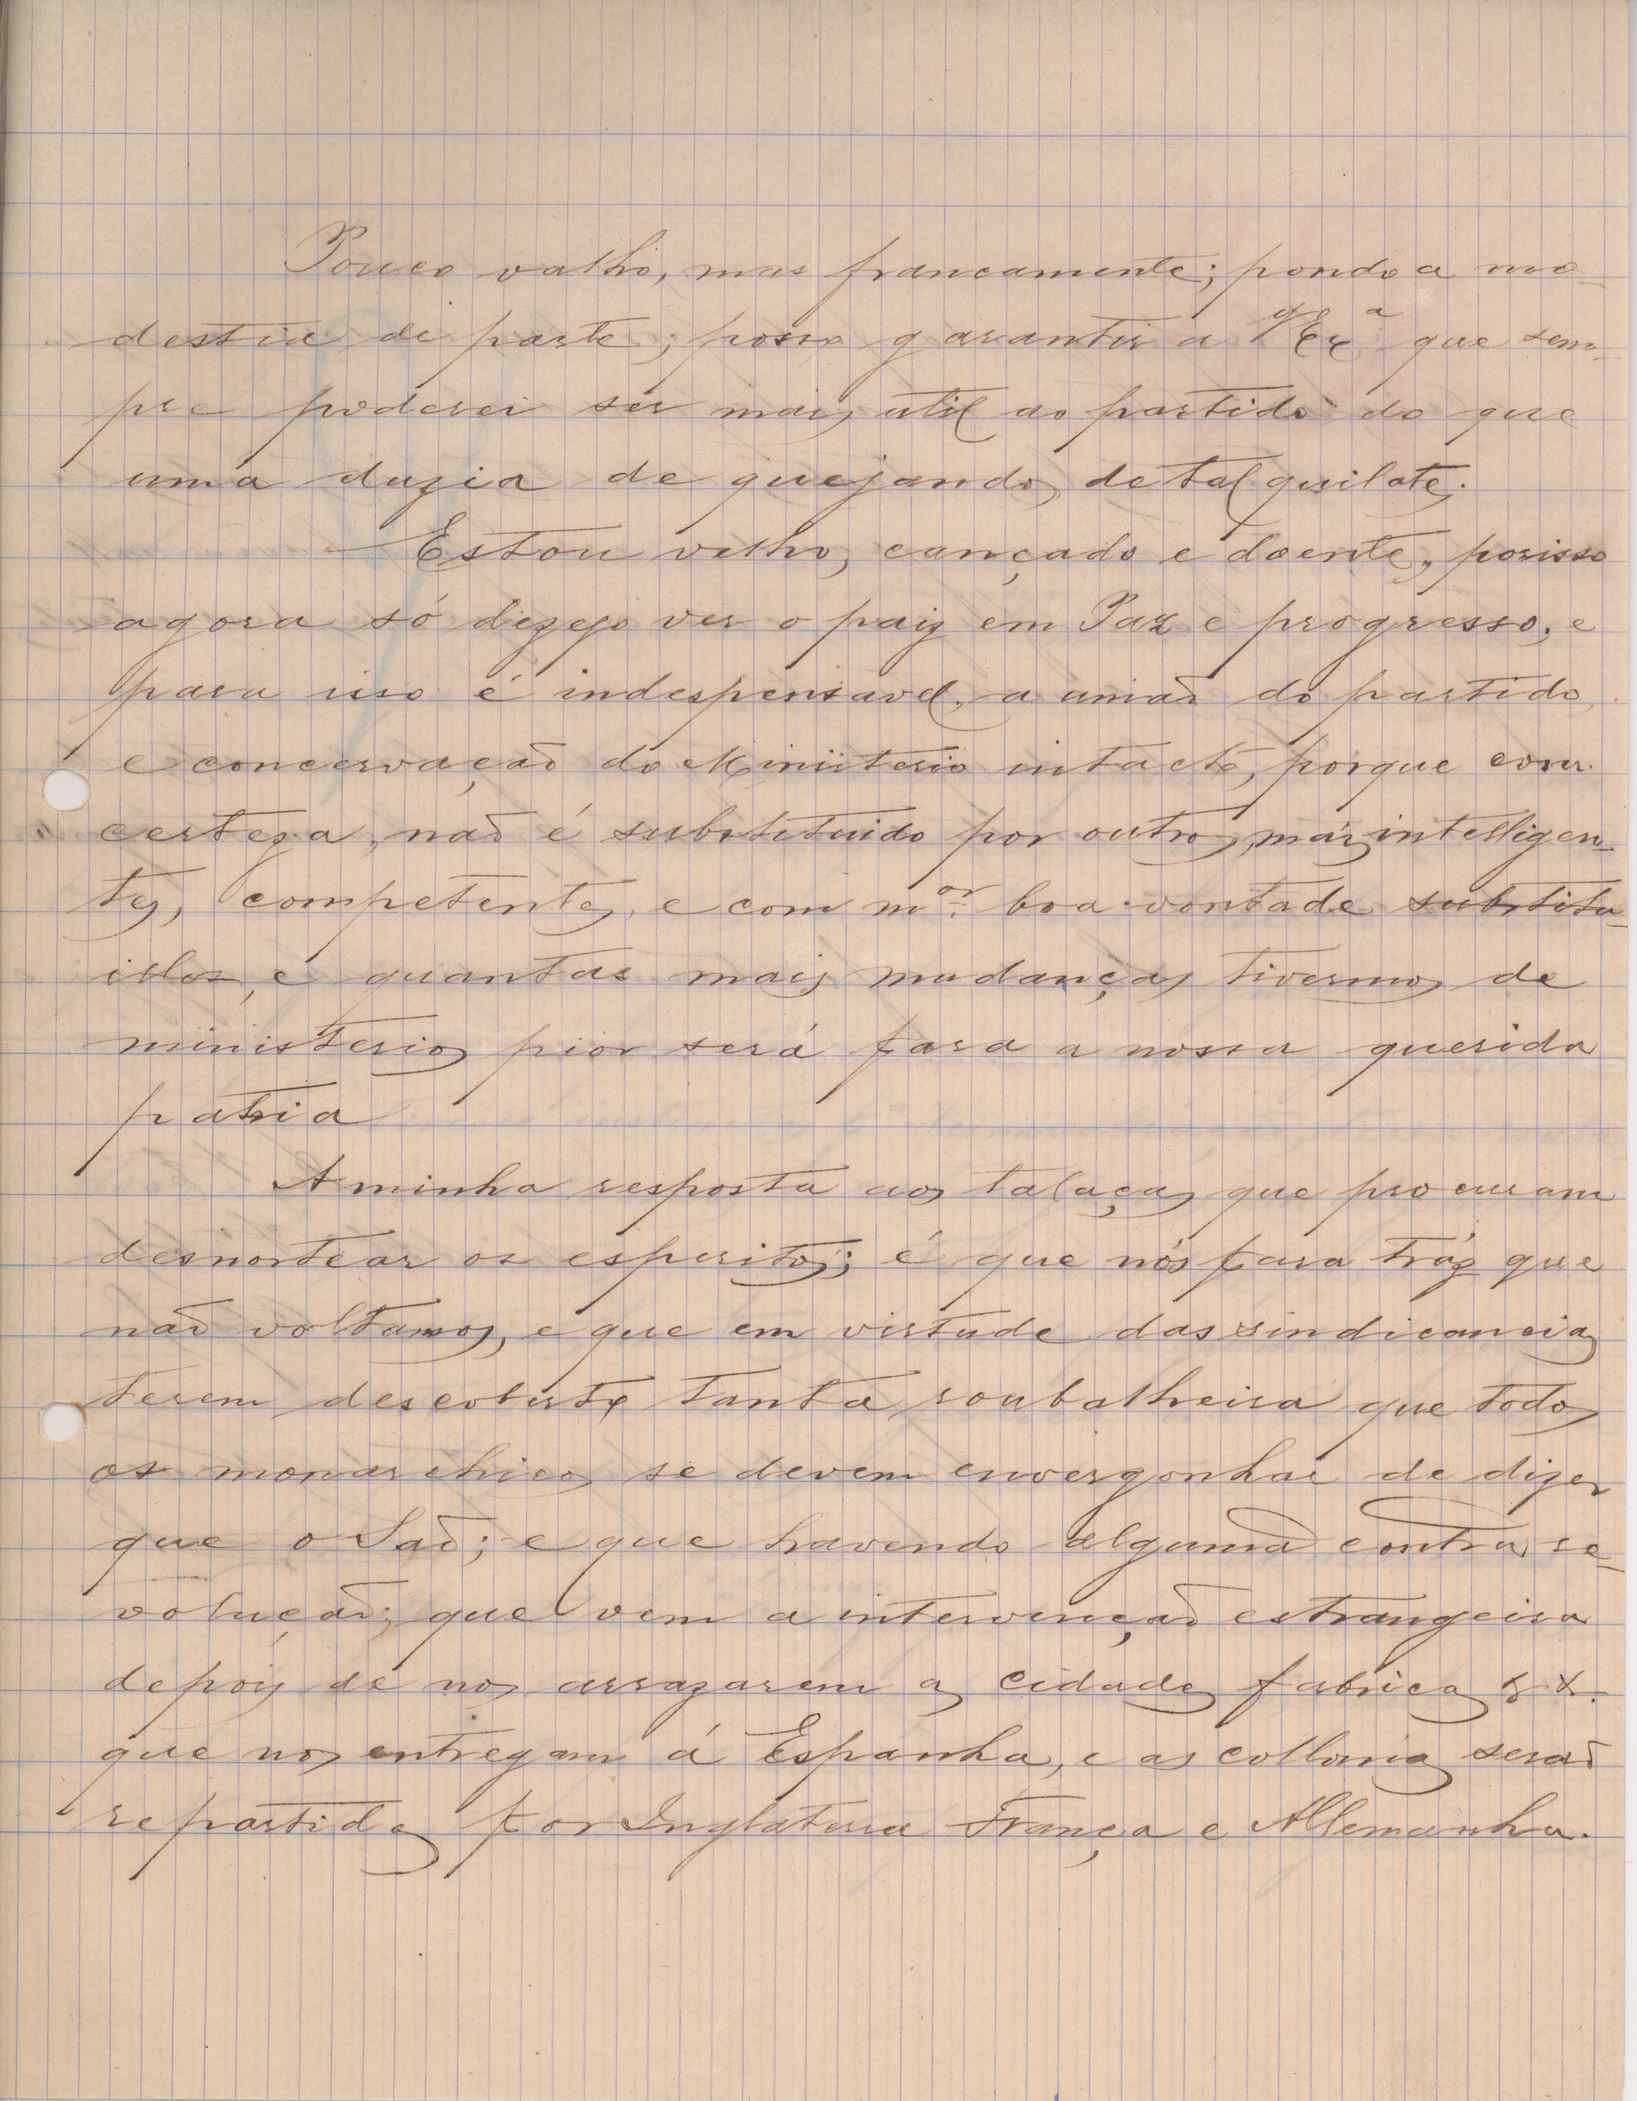 Pouco valho, mas francamente; pondo a mo-
destia de parte; posso garantir a V Exª que sem-
pre poderei ser mais util ao partido do que
uma duzia de quejandos de tal quilate.
Estou velho, cançado e doente, porisso
agora só dezejo ver o paiz em Paz e progresso, e
para isso é indespensavel, a união do partido,
e concervação do Ministerio intacto, porque com
certeza, não é substituido por outros, mais intelligen-
tes, competentes, e com mor boa vontade substitu-
illos, e quantas mais mudanças tivermos de
ministerios pior será para a nossa querida
patria
A minha resposta aos talaças que procuram
desnortear os espiritos; é que nós para tráz que
não voltamos, e que em virtude das sindicancias
terem descoberto tanta roubalheira que todos
os monarchicos se devem envergonhar de dizer
que o São; e que havendo alguma contra re-
volução; que vem a intervenção estrangeira
depois de nos arrazarem as cidades fabricas & &.
que nos entregam á Espanha, e as collonias serão
repartidas por Inglaterra França e Allemanha.